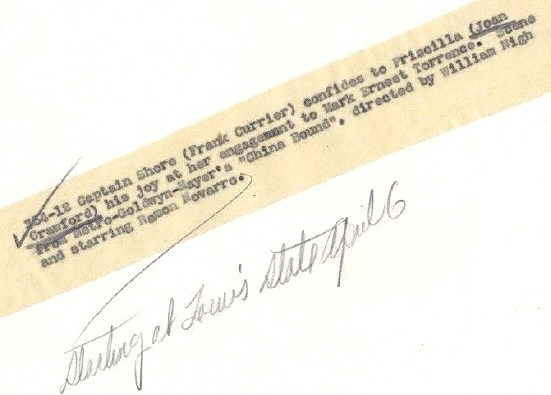 354-12 Captain Shore (Frank Currier) confides to Priscilla (Joan
Crawford) his joy at her engagement to Mark Ernest Torrence. Scene
from Metro-Goldwyn-Mayer's "China Bound", directed by William Nigh
and starring Ramon Novarro.
Starting at Loew's State April 6